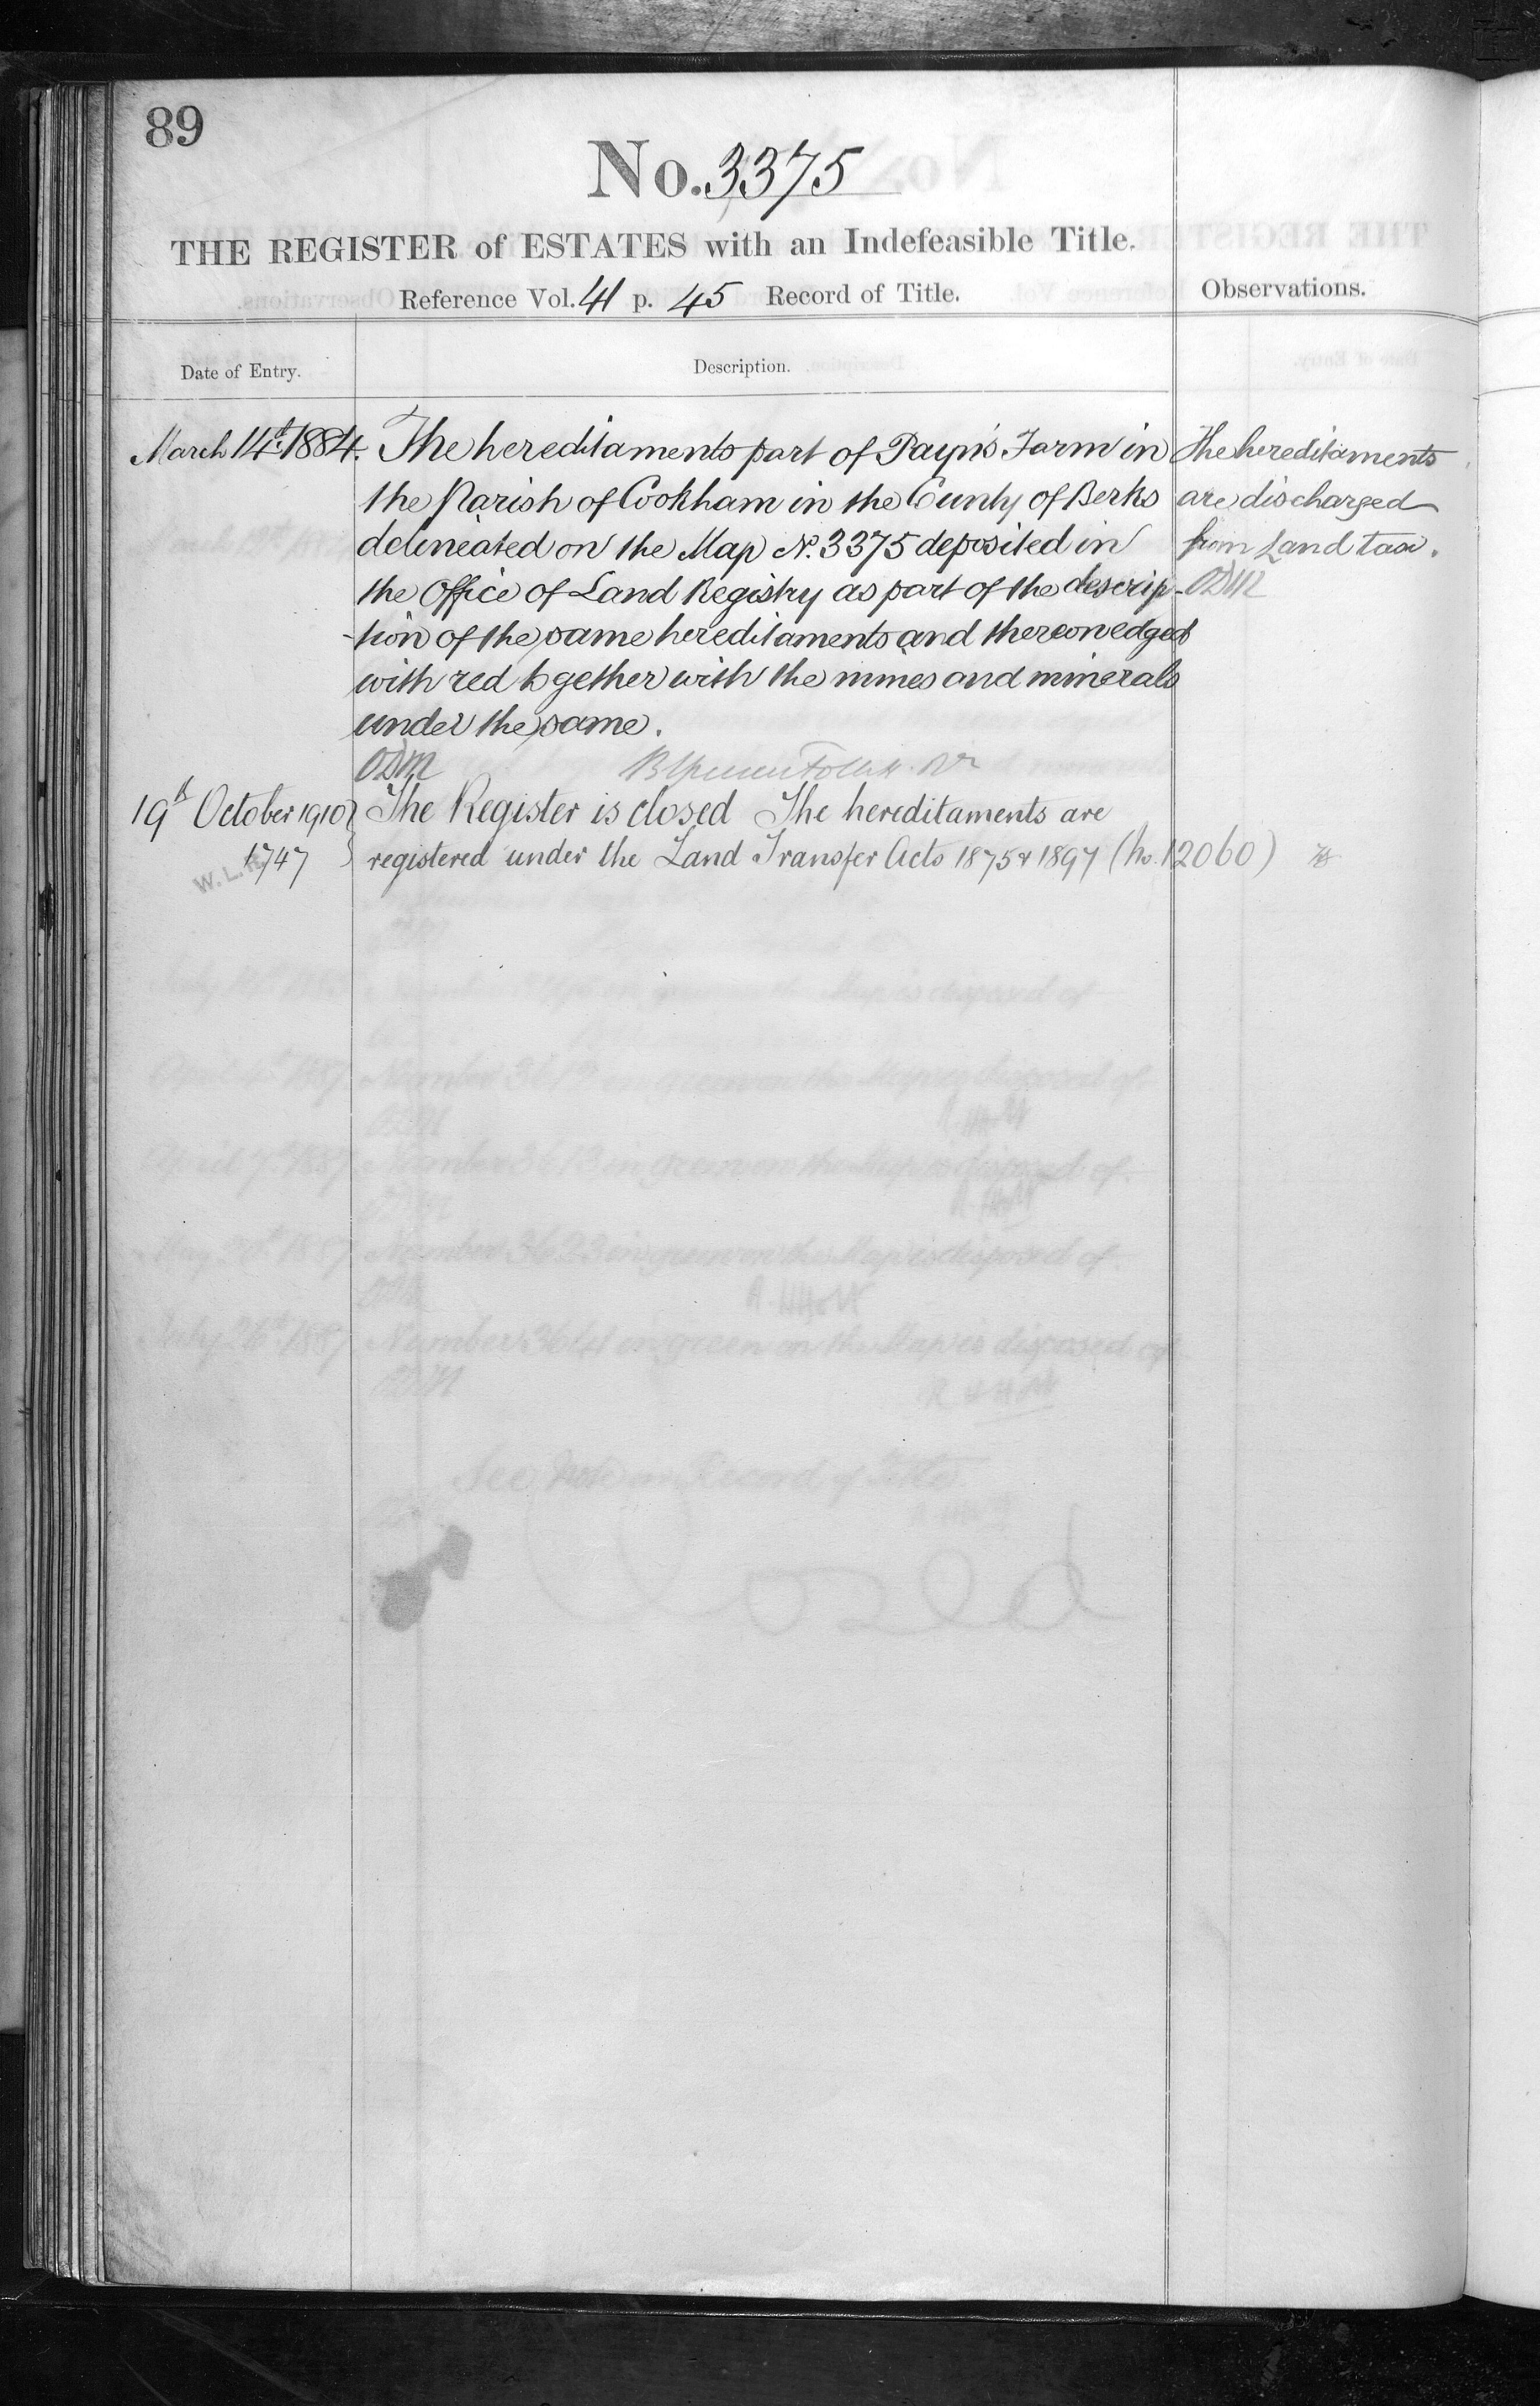 89
No. 3375
THE REGISTER of ESTATES with an Indefeasible Title.
Reference Vol. 41 p. 45 Record of Title.
Observations.
Date of Entry.
Description.
March 14th 1884. The hereditaments part of Payn's Farm in
the Parish of Cookham in the County of Berks
delineated on the Map No. 3375 deposited in
the Office of Land Registry as part of the descrip-
-tion of the same hereditaments and thereon edged
with red together with the mines and minerals
under the same.
ODM
The hereditaments
are discharged
from Land tax.
ODM
19th October 1910 The Register is closed The hereditaments are
1747 registered under the Land Transfer Acts 1875 & 1897 (No. 12060)